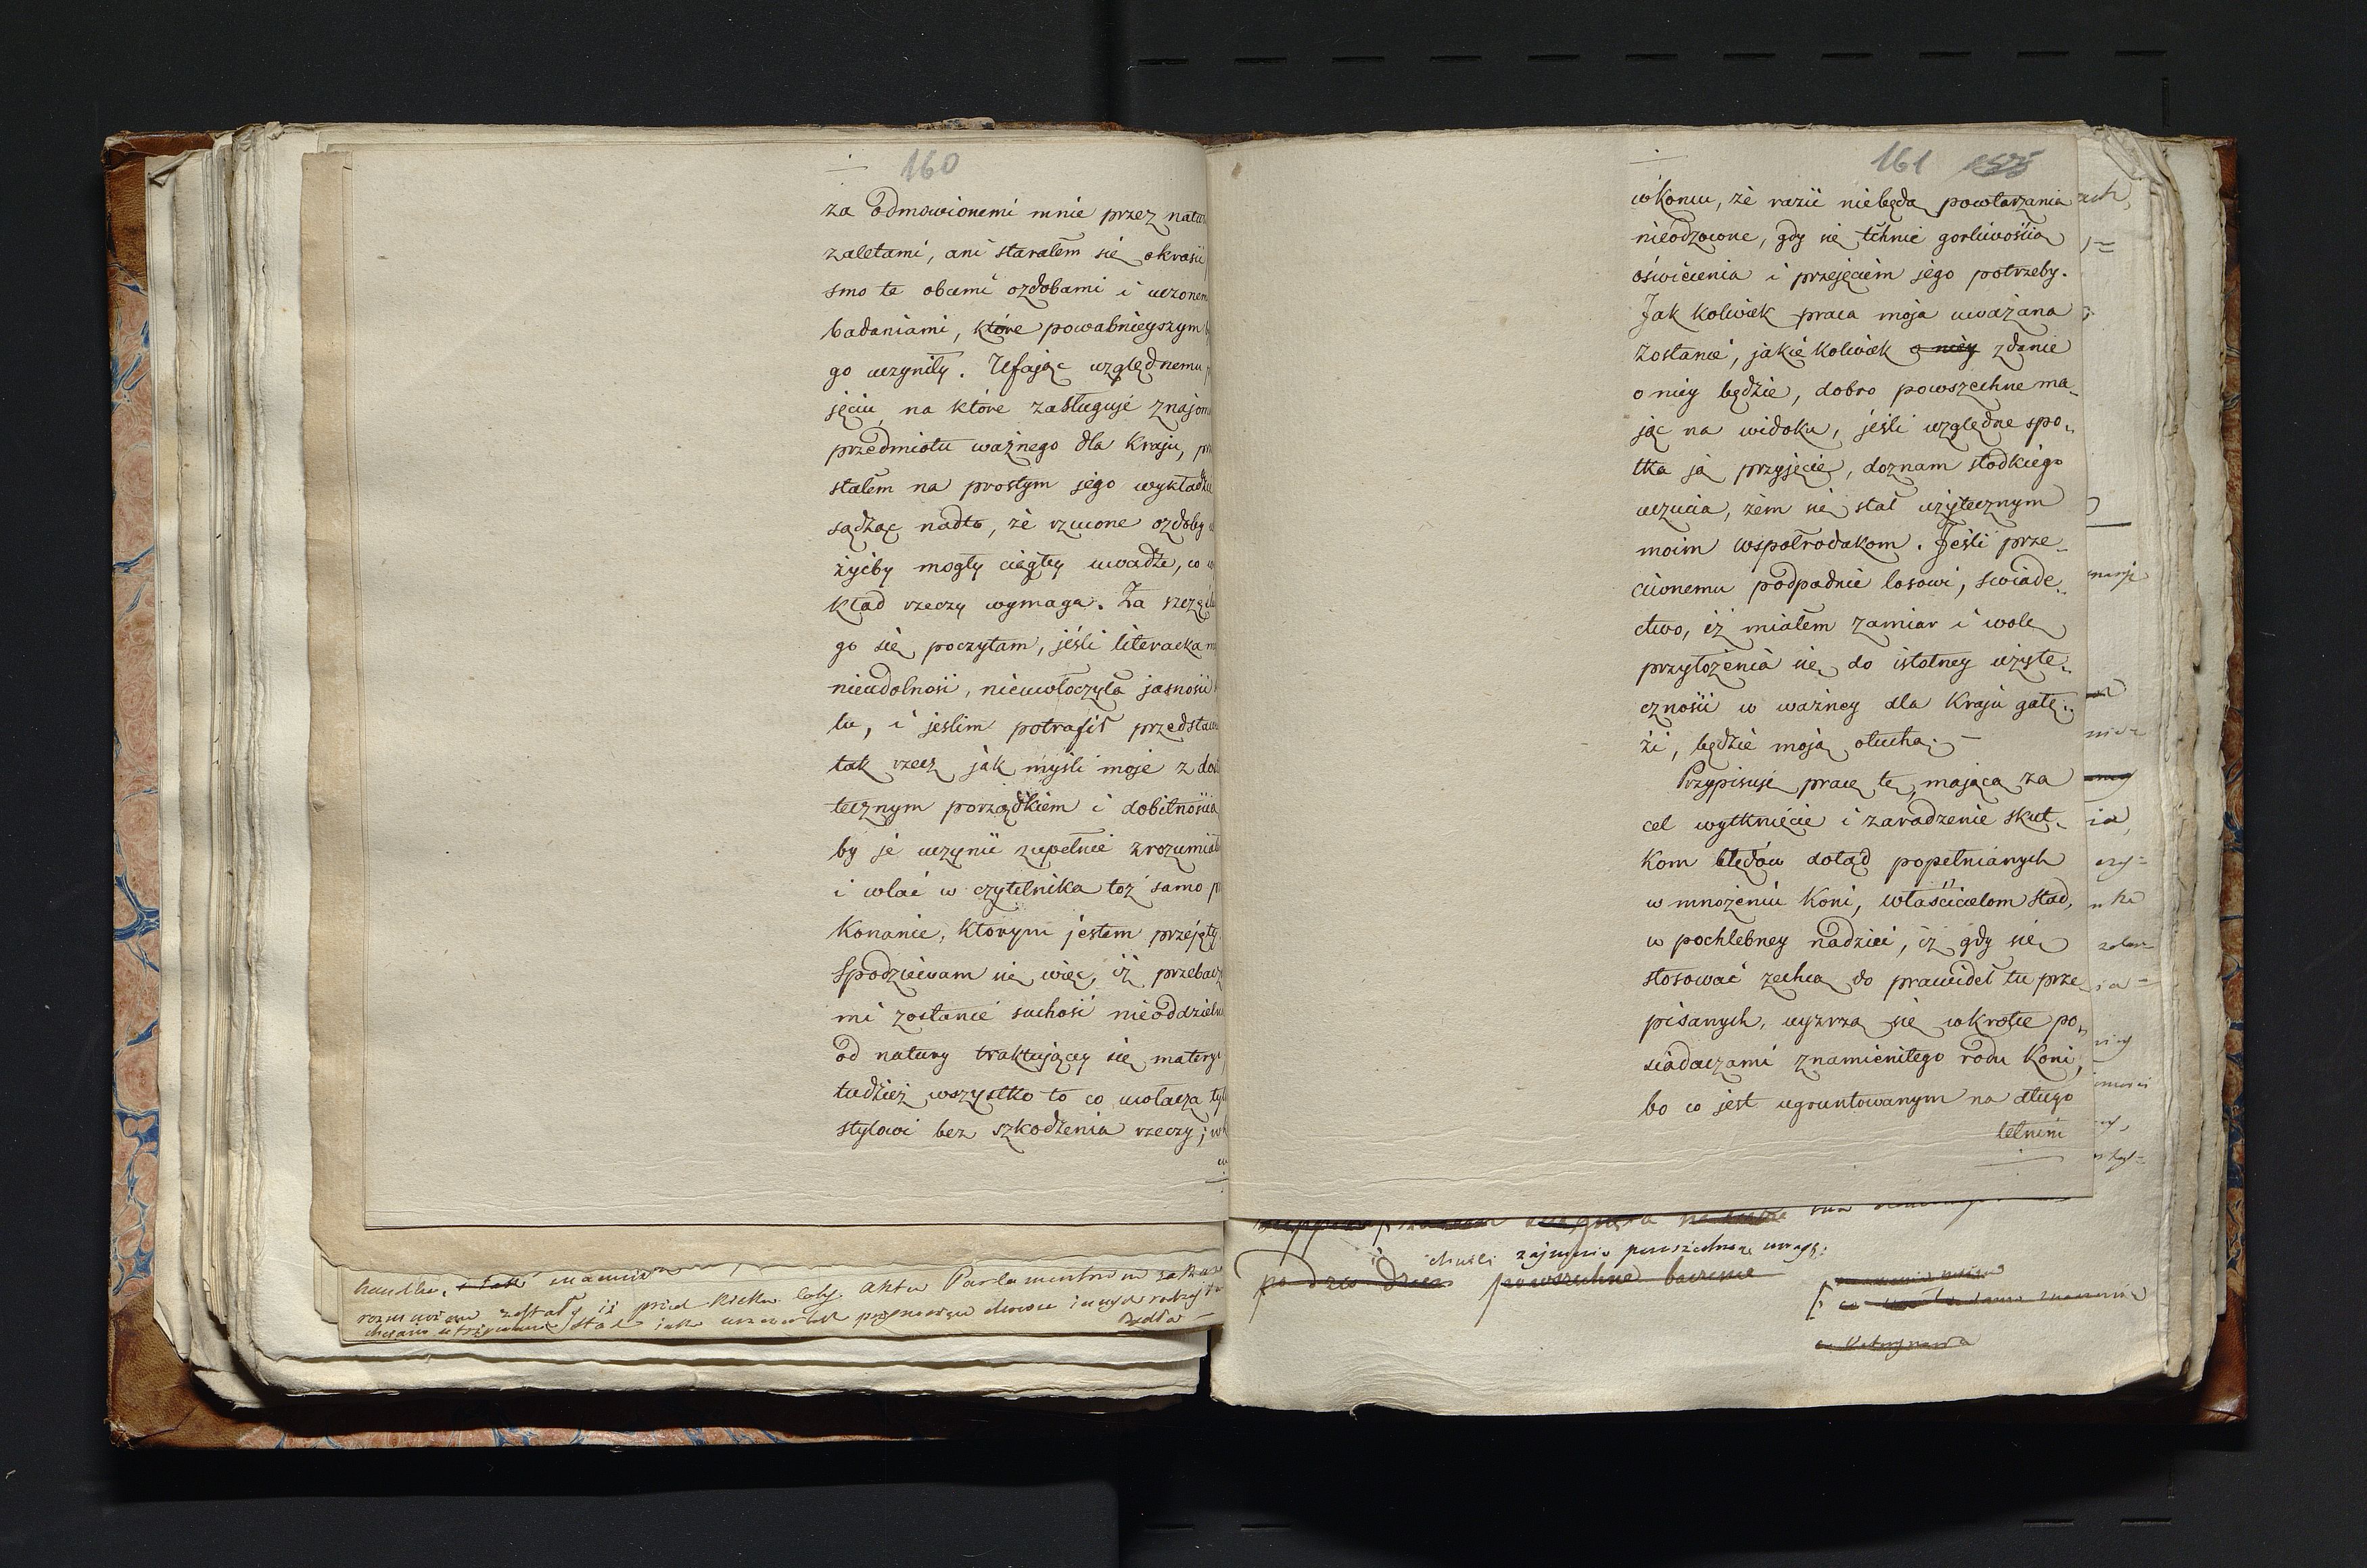 160
za odmowionemi mnie przez natu
zaletami, ani starałem się okrasić
smo te obcemi ozdobami i uczonem
badaniami, które powabnieyszym
go uczyniły. Ufając względnemu
jęciu na które zasługuje znajom
przedmiotu ważnego dla Kraju, pr
stałem na prostym jego wykładzie
sądząc nadto, że rzucone ozdoby
żyćby mogły ciągłey uwadze, co
kład rzeczy wymaga. Za szczęśl
go się poczytam, jeśli literacka
nieudolność, nieuwłoczyła jasności
lu, i jeslim potrafił przedstaw
tak rzecz jak myśli moje z dost
tecznym porządkiem i dobitnością
by je uczynić zupełnie zrozumiał
i wlać w czytelnika toż samo p
Konanie, którym jestem przejęty.
Spodziewam się więc, iż przebacz
mi zostanie suchość nieoddzieln
od natury traktującey się matery
tudzież wszystko to co uwłacza tyl
stylowi bez szkodzenia rzeczy; w
161
wkońcu, że razić niebędą powtarzania
nieodzowne, gdy się tchnie gorliwością
oświecenia i przejęciem jego potrzeby.
Jak kolwiek praca moja uważana
zostanie, jakie kolwiek o niey zdanie
o niey będzie, dobro powszechne ma-
jąc na widoku, jeśli względne spo-
tka ją przyjęcie, doznam słodkiego
uczucia, żem się stał użytecznym
moim współrodakom. Jeśli prze-
ciwnemu podpadnie losowi, swiade-
ctwo, iż miałem zamiar i wolę
przyłożenia się do istotney użyte-
czności w ważney dla Kraju gałę-
zi, będzie moją otuchą. –
Przypisuję pracę tę, mającą za
cel wytknięcie i zaradzenie skut-
kom błędów dotąd popełnianych
w mnożeniu Koni, właścicielom stad,
w pochlebney nadziei, iż gdy się
stosować zechcą do prawideł tu prze
pisanych, uyzrzą się wkrótce po-
siadaczami znamienitego rodu Koni,
bo co jest ugruntowanym na długo
letnim
zajmuie powszechną uwagę:
powszechne baczenie
handlu,
zostały iż przed kilku laty Aktu Parlamentu